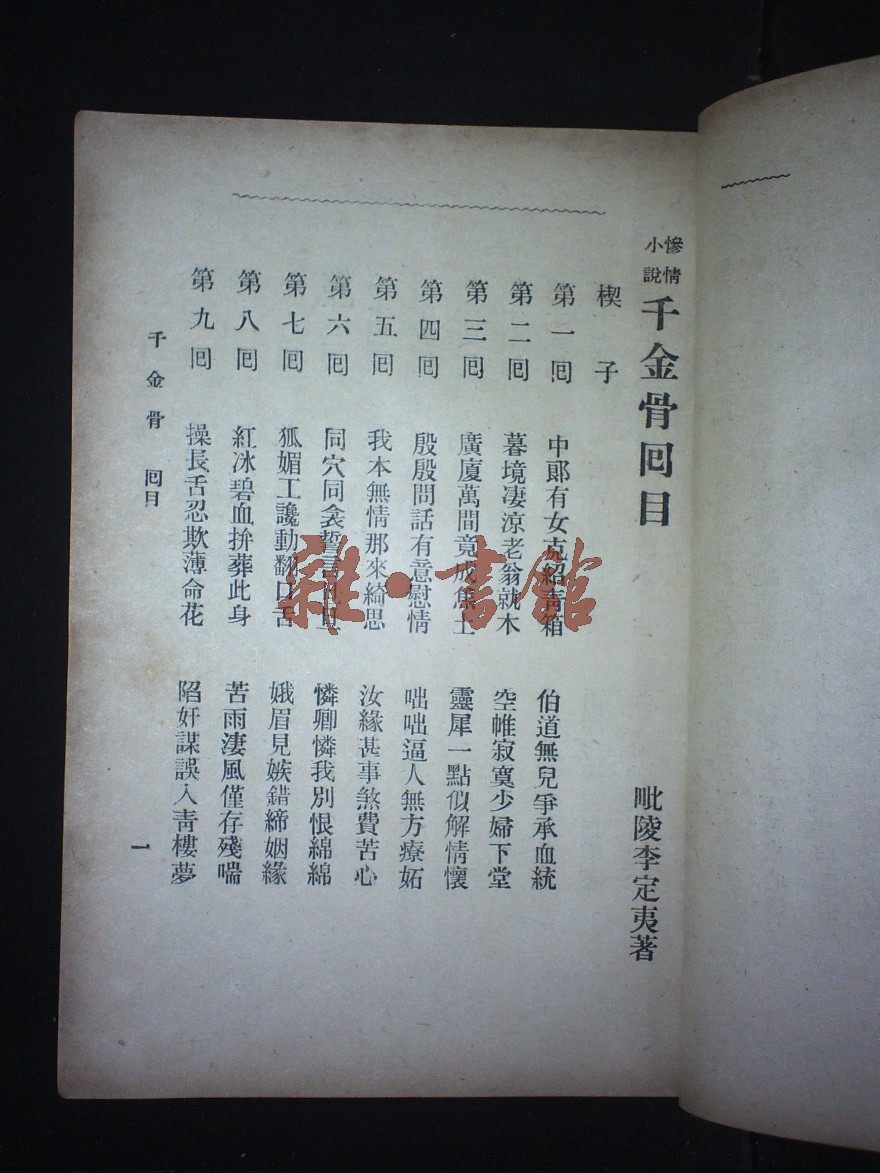 慘情小說
千金骨囘目
毗陵李定夷著
楔子
第一囘　中郞有女克紹靑箱　伯道無兒爭承血統
第二囘　暮境凄涼老翁就木　空帷寂寞少婦下堂
第三囘　廣廈萬間竟成焦土　靈犀一點似解情懷
第四囘　殷殷問話有意慰情　咄咄逼人無方療妬
第五囘　我本無情那來綺思　汝緣甚事煞費苦心
第六囘　同穴同衾誓言　憐卿憐我別恨綿綿
第七囘　狐媚工讒動翻口舌　娥眉見嫉錯締姻緣
第八囘　紅冰碧血拚葬此身　苦雨淒風僅存殘喘
第九囘　操長舌忍欺薄命花　陷奸謀誤入靑樓夢
千金骨　囘目
一
雜·書館